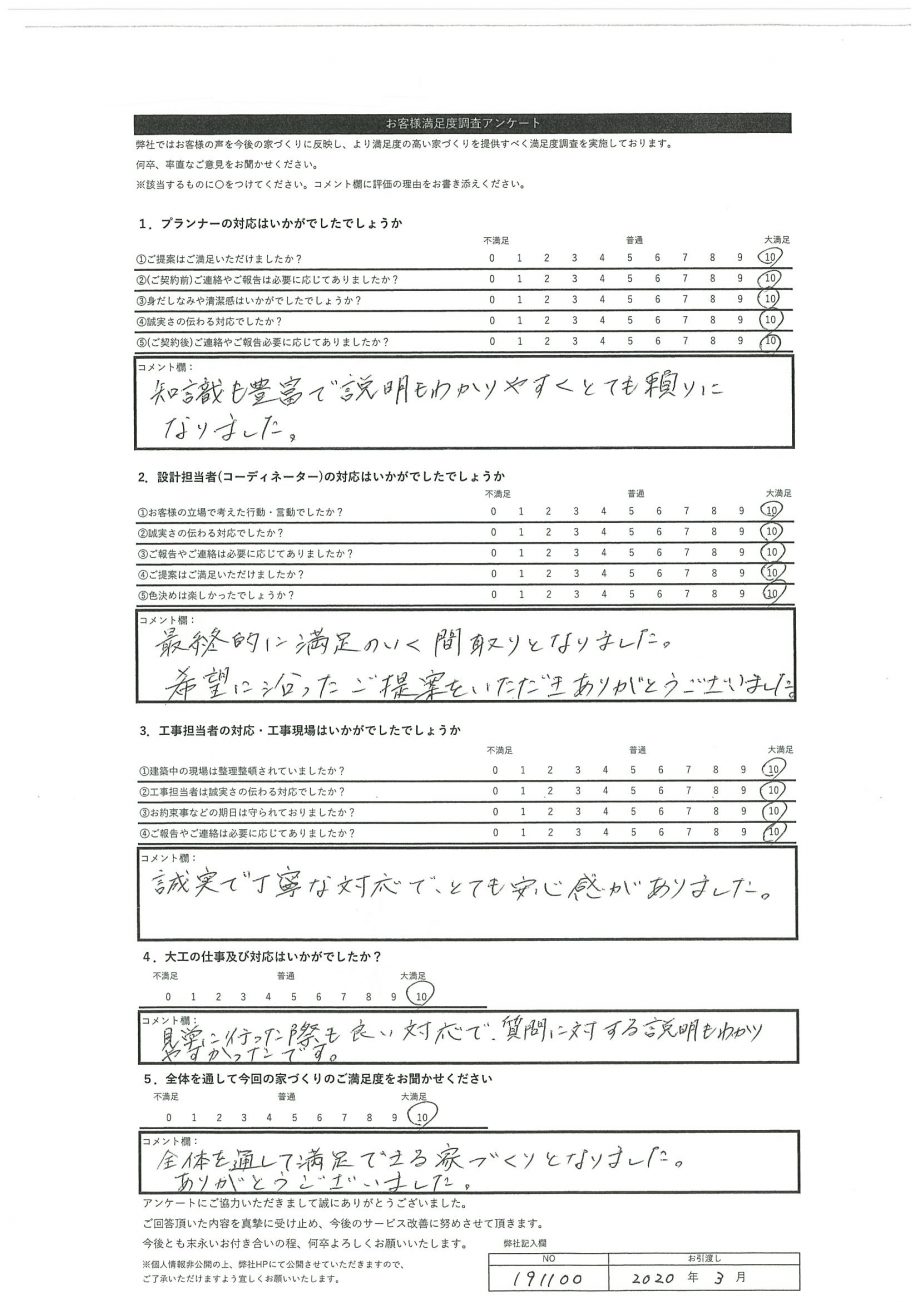 お客様満足度調査アンケート
弊社ではお客様の声を今後の家づくりに反映し、より満足度の高い家づくりを提供すべく満足度調査を実施しております。
何卒、率直なご意見をお聞かせください。
※該当するものに〇をつけてください。コメント欄に評価の理由をお書き添えください。
1．プランナーの対応はいかがでしたでしょうか
不満足 普通 大満足
①ご提案はご満足いただけましたか？ 0 1 2 3 4 5 6 7 8 9 10
②(ご契約前)ご連絡やご報告は必要に応じてありましたか？ 0 1 2 3 4 5 6 7 8 9 10
③身だしなみや清潔感はいかがでしたでしょうか？ 0 1 2 3 4 5 6 7 8 9 10
④誠実さの伝わる対応でしたか？ 0 1 2 3 4 5 6 7 8 9 10
⑤(ご契約後)ご連絡やご報告必要に応じてありましたか？ 0 1 2 3 4 5 6 7 8 9 10
コメント欄：
知識も豊富で説明もわかりやすくとても頼りに
なりました。
2．設計担当者(コーディネーター)の対応はいかがでしたでしょうか
不満足 普通 大満足
①お客様の立場で考えた行動・言動でしたか？ 0 1 2 3 4 5 6 7 8 9 10
②誠実さの伝わる対応でしたか？ 0 1 2 3 4 5 6 7 8 9 10
③ご報告やご連絡は必要に応じてありましたか？ 0 1 2 3 4 5 6 7 8 9 10
④ご提案はご満足いただけましたか？ 0 1 2 3 4 5 6 7 8 9 10
⑤色決めは楽しかったでしょうか？ 0 1 2 3 4 5 6 7 8 9 10
コメント欄：
最終的に満足のいく間取りとなりました。
希望に沿ったご提案をいただきありがとうございました。
3．工事担当者の対応・工事現場はいかがでしたでしょうか
不満足 普通 大満足
①建築中の現場は整理整頓されていましたか？ 0 1 2 3 4 5 6 7 8 9 10
②工事担当者は誠実さの伝わる対応でしたか？ 0 1 2 3 4 5 6 7 8 9 10
③お約束事などの期日は守られておりましたか？ 0 1 2 3 4 5 6 7 8 9 10
④ご報告やご連絡は必要に応じてありましたか？ 0 1 2 3 4 5 6 7 8 9 10
コメント欄：
誠実で丁寧な対応で、とても安心感がありました。
4．大工の仕事及び対応はいかがでしたか？
不満足 普通 大満足
0 1 2 3 4 5 6 7 8 9 10
コメント欄：
見学に行った際も良い対応で、質問に対する説明もわかり
やすかったです。
5．全体を通して今回の家づくりのご満足度をお聞かせください
不満足 普通 大満足
0 1 2 3 4 5 6 7 8 9 10
コメント欄：
全体を通して満足できる家づくりとなりました。
ありがとうございました。
アンケートにご協力いただきまして誠にありがとうございました。
ご回答頂いた内容を真摯に受け止め、今後のサービス改善に努めさせて頂きます。
今後とも末永いお付き合いの程、何卒よろしくお願いいたします。
弊社記入欄
※個人情報非公開の上、弊社HPにて公開させていただきますので、
ご了承いただけますよう宜しくお願いいたします。
NO お引渡し
191100 2020 年 3 月